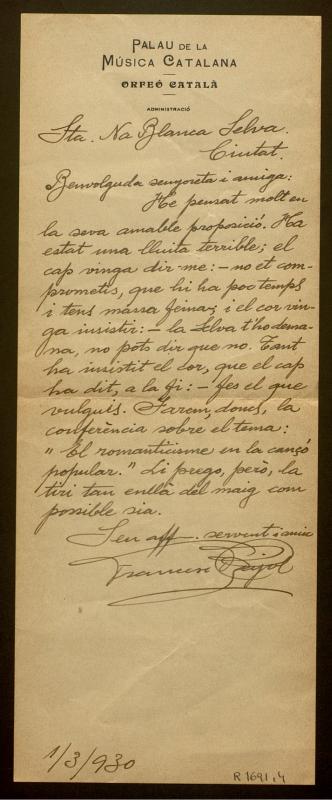 PALAU DE LA
MÚSICA CATALANA
ORFEÓ CATALÀ
ADMINISTRACIÓ
Sta. Na Blanca Selva.
Ciutat.
Benvolguda senyoreta i amiga:
He pensat molt en
la seva amable proposició. Ha
estat una lluita terrible; el
cap vinga dir-me: - no et com-
prometis, que hi ha poc temps
i tens massa feina; i el cor vin-
ga insistir: - la Selva t'ho dema-
na, no pots dir que no. Tant
ha insistit el cor, que el cap
ha dit, a la fi: - fes el que
vulguis. Farem, doncs, la
conferència sobre el tema:
"El romanticisme en la cançó
popular." Li prego, però, la
tiri tan enllà del maig com
possible sia.
Seu aff. servent i amic
Francesc Pujol
1/3/930
R 1691,4